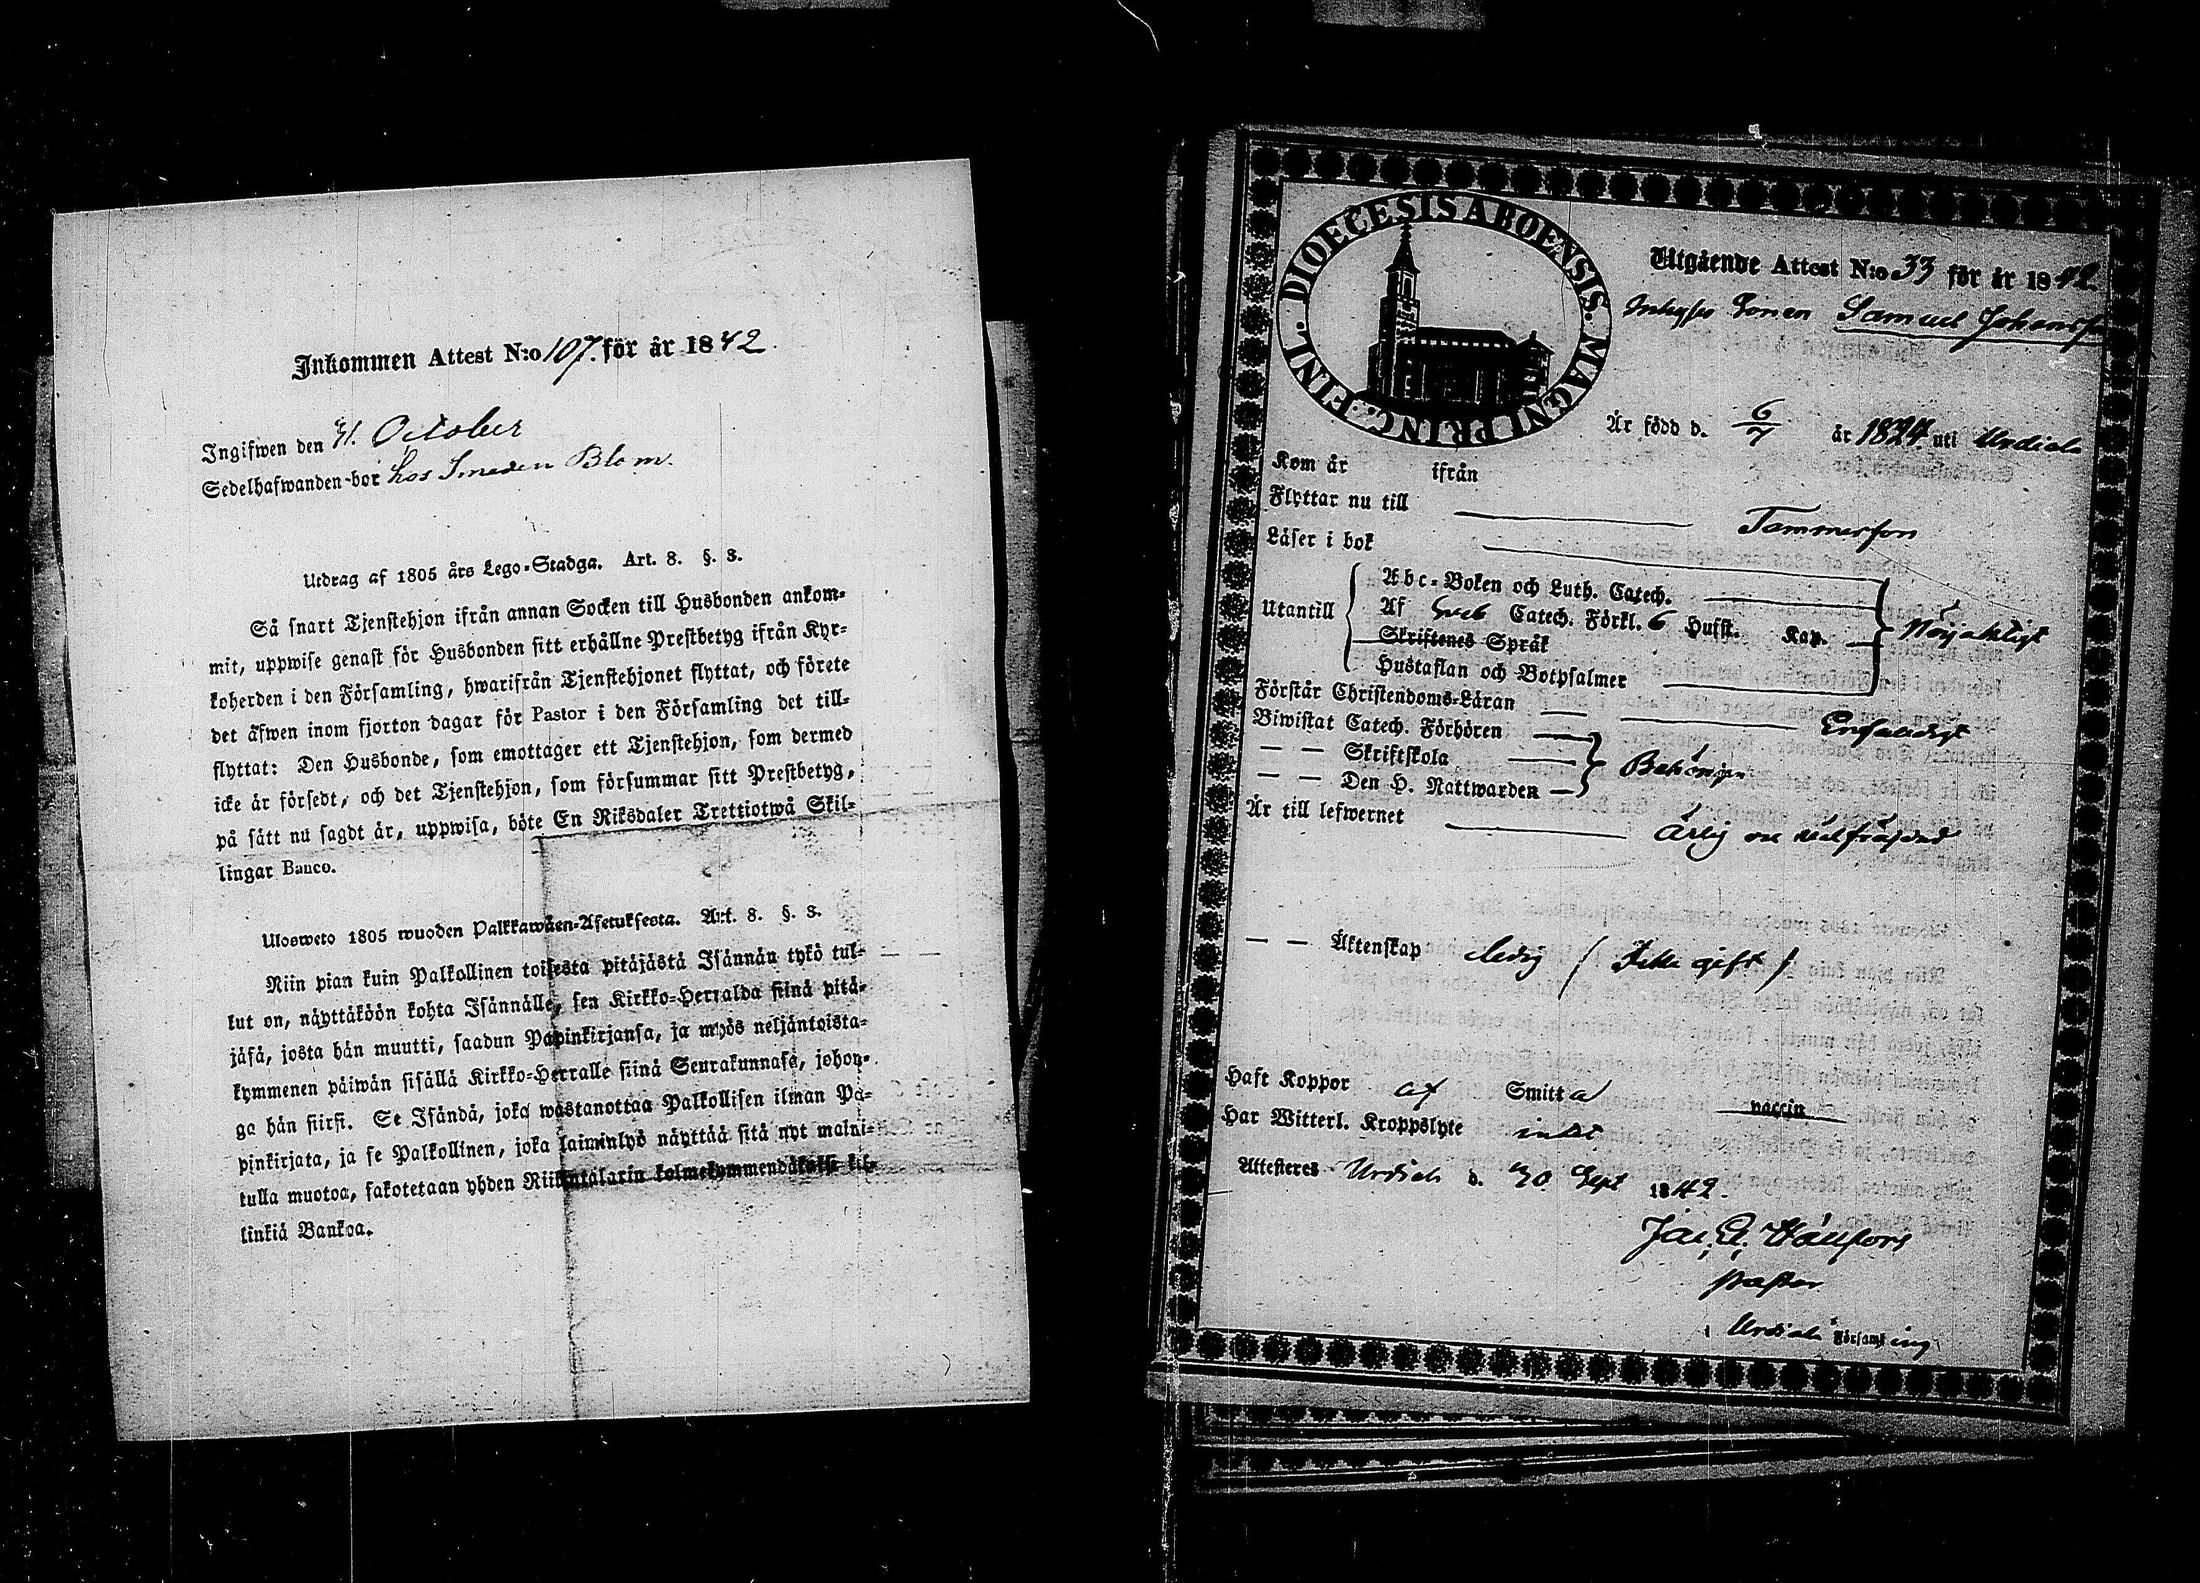 Inkommen Attest N:o 107. för år 1842.
Ingifwen den 31. October
Sedelhafwanden bor hos Smeden Blom.
Utdrag af 1805 års Lego-Stadga. Art. 8. §. 3.
Så snart Tjenstehjon ifrån annan Socken till Husbonden ankom-
mit, uppwise genast för Husbonden sitt erhållne Prestbetyg ifrån Kyr-
koherden i den Församling, hwarifrån Tjenstehjonet flyttat, och förete
det äfwen inom fjorton dagar för Pastor i den Församling det till-
flyttat: Den Husbonde, som emottager ett Tjenstehjon, som dermed
icke är försedt, och det Tjenstehjon, som försummar sitt Prestbetyg,
på sätt nu sagdt är, uppwisa, böte En Riksdaler Trettiotwå Skil-
lingar Banco.
Ulosweto 1805 wuoden Palkkawäen-Asetuksesta. Art. 8. §. 3.
Niin pian kuin Palkollinen toisesta pitäjästä Isännän tykö tul-
lut on, näyttäköön kohta Isännälle, sen Kirkko-Herralda siinä pitä-
jäsä, josta hän muutti, saadun Papinkirjansa, ja myös neljäntoista-
kymmenen päiwän sisällä Kirkko-Herralle siinä Seurakunnasa, johon-
ga hän siirsi. Se Isändä, joka wastanottaa Palkollisen ilman Pa-
pinkirjata, ja se Palkollinen, joka laiminlyö näyttää sitä nyt maini-
tulla muotoa, sakotetaan yhden Riikintalarin kolmekymmendäkaksi kil-
linkiä Bankoa.
DIOECESIS ABOENSIS. MAGNI PRINC. FINL.
Utgående Attest N:o 33 för år 1842.
Sonen Samuel Johansson
Är född d. 6/7 år 1824 uti Urdiala
Kom år ifrån
Flyttar nu till Tammerfors
Läser i bok
Utantill
Abc-Boken och Luth. Catech.
Af Sveb Catech. Förkl. 6 Hufst. Kap.
Nöjaktigt
Skriftenes Språk
Hustaflan och Botpsalmer
Förstår Christendoms-Läran Enfaldigt
Biwistat Catech. Förhören
— — Skriftskola Behörigen
— — Den H. Nattwarden
Är till lefwernet Ärlig och välfräjdad
— — Äktenskap Ledig (Icke gift)
Haft Koppor af Smitta vaccin
Har Witterl. Kroppslyte intet
Attesteres Urdiala d. 30 Sept 1842.
Pastor
i Urdiala Församling